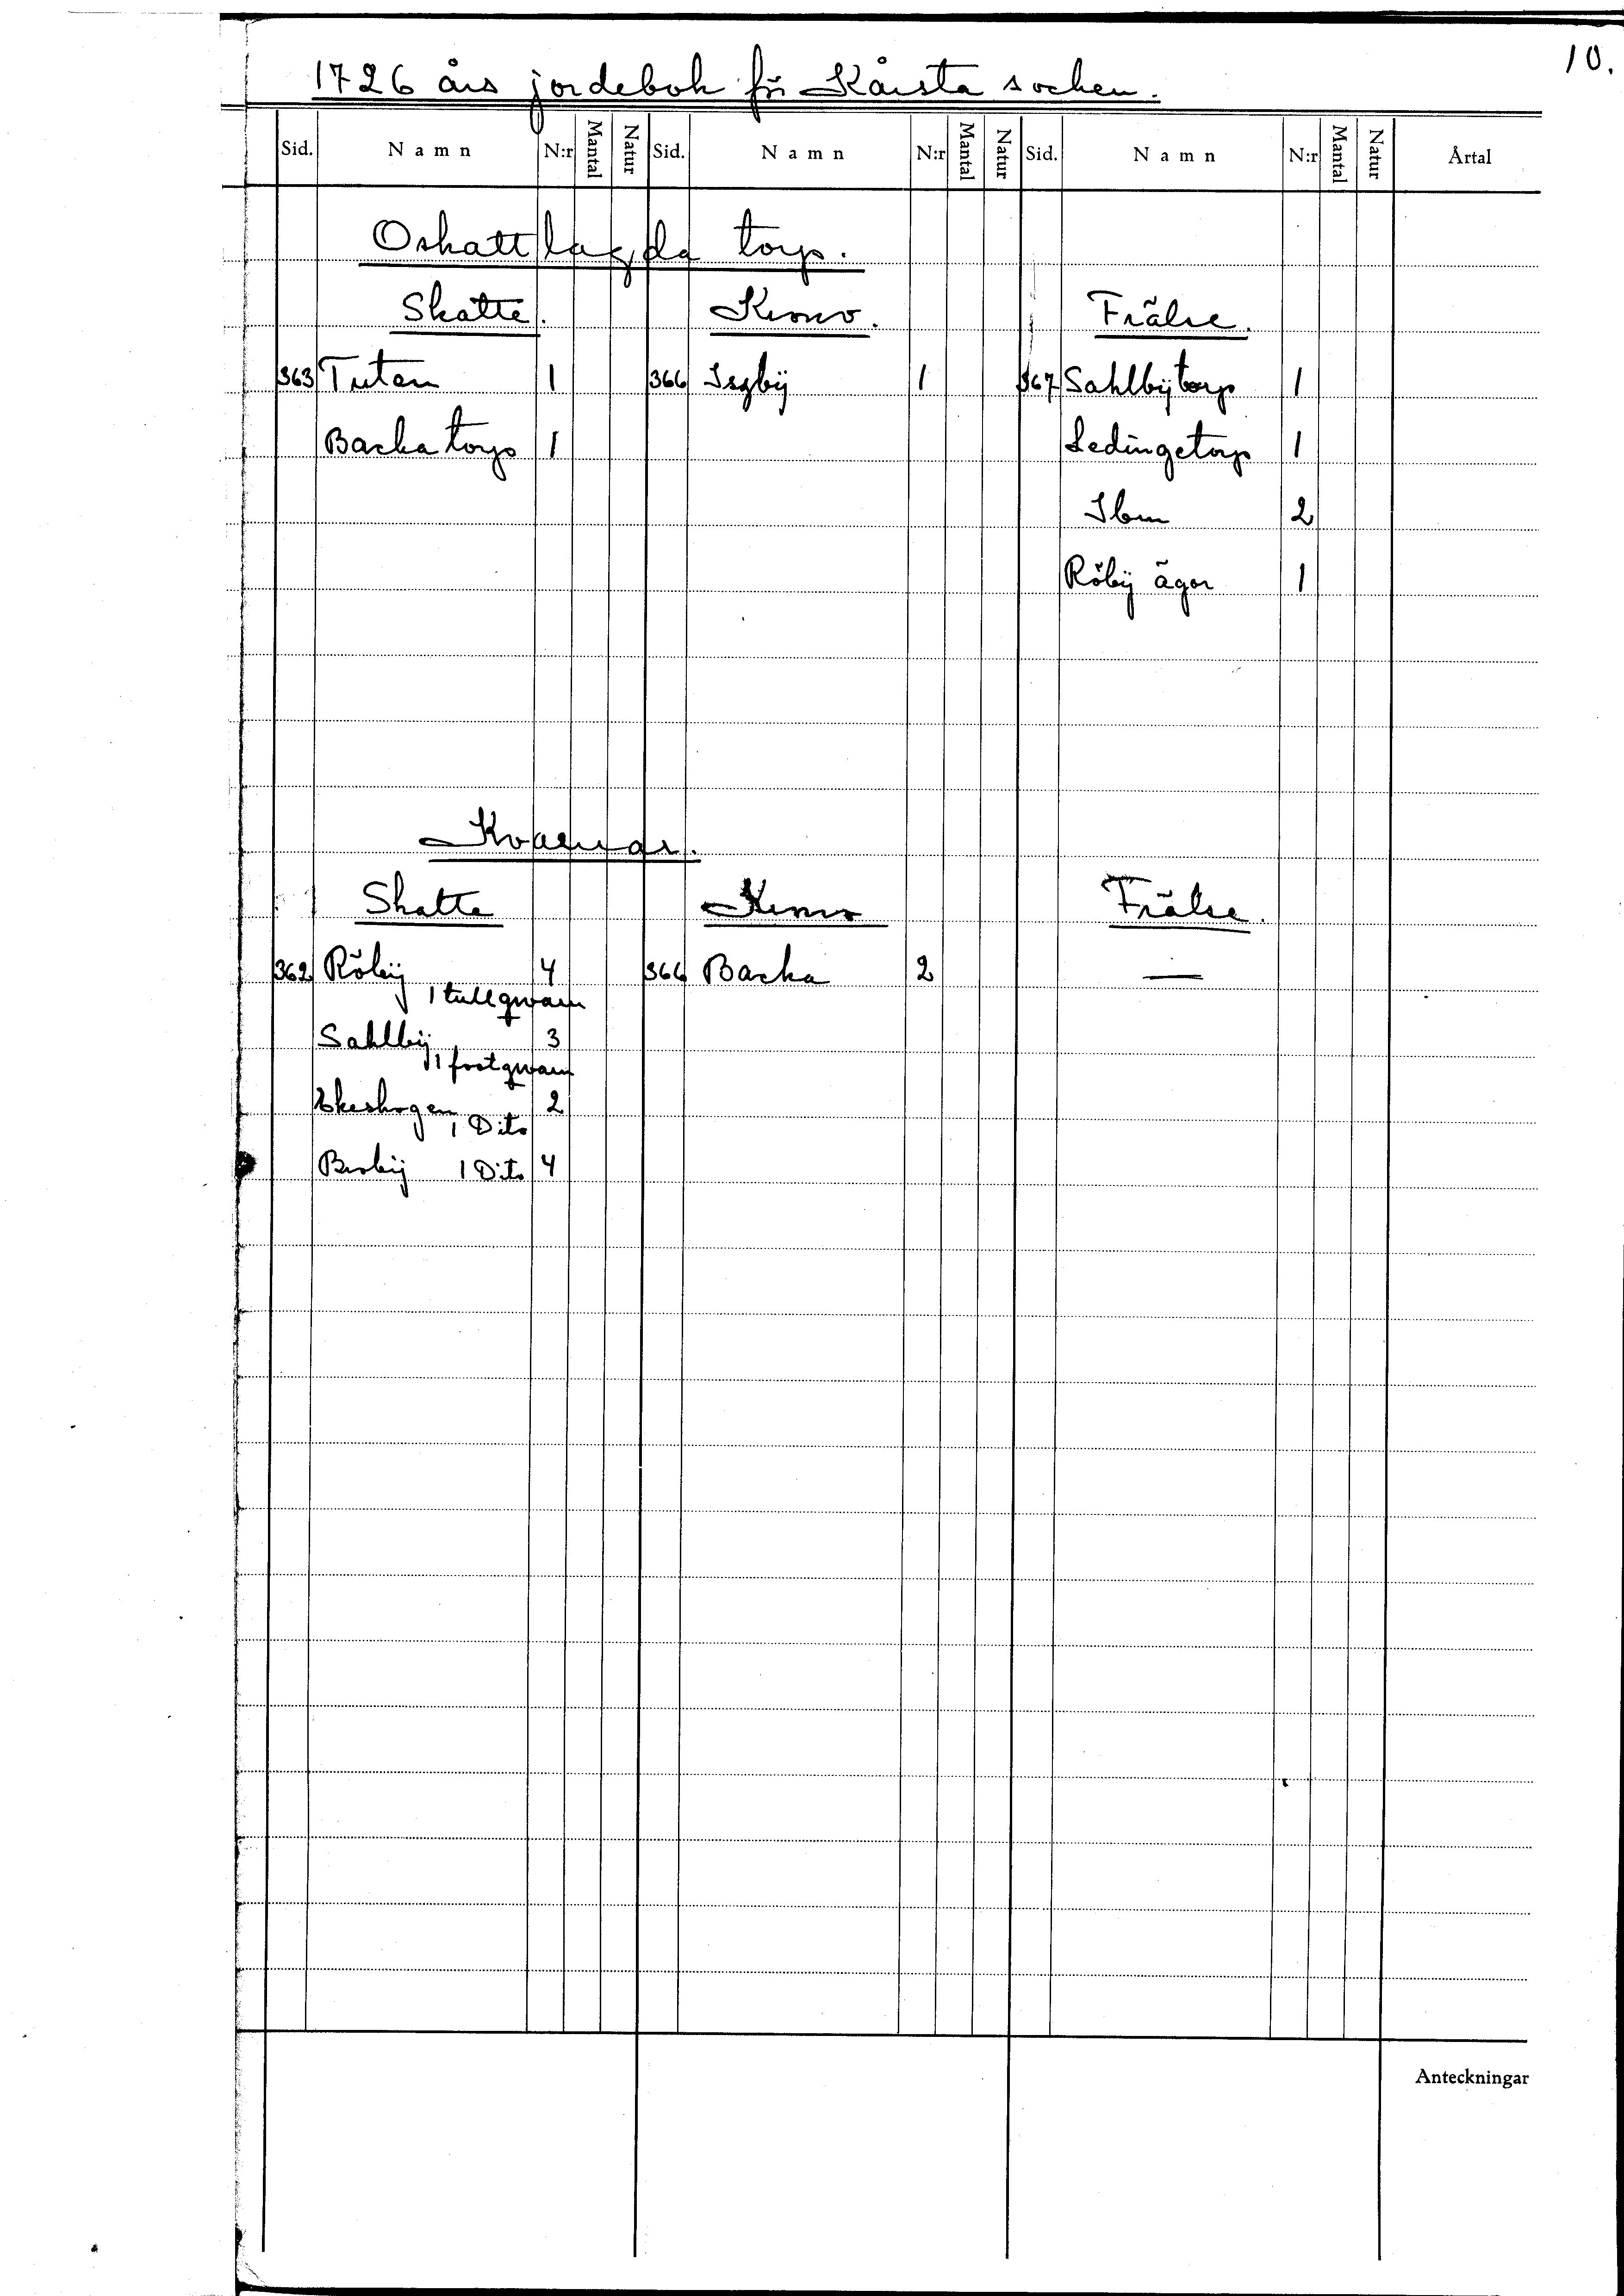 10.
1726 års jordebok för Kårsta socken.
Sid. Namn N:r Mantal Natur Sid. Namn N:r Mantal Natur Sid. Namn N:r Mantal Natur Årtal
Oskattlagda torp.
Skatte. Krono. Frälse.
363 Tuten 1 366 Isgbÿ 1 367 Sahlbÿtorp 1
Backa torp 1 Ledingetorp 1
Ibm 2
Röbÿ ägor 1
Kvarnar.
Skatte Krono Frälse.
362 Röbÿ 4 366 Backa 2 —
1 tullqvarn
Sahlbÿ 3
1 footqvarn
Ekeskogen 2
1 Dito
Brobÿ 1 Dito 4
Anteckningar